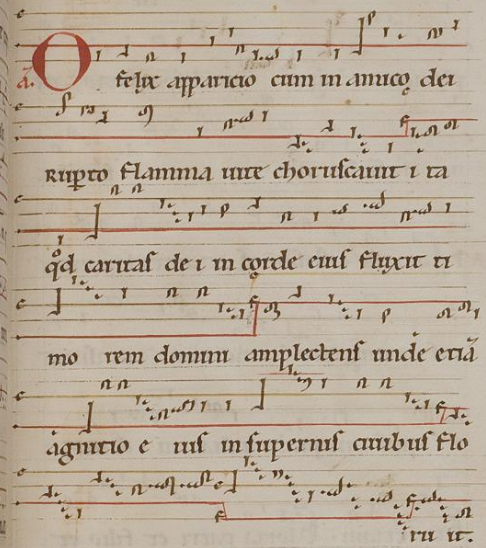 O felix apparicio cum in amico dei
Rupto flamma uite choruscauit i ta
qd caritas de i in corde eius fluxit ti
mo rem domini amplectens unde etiā
agnitio e ius in supernis ciuibus flo
ru it.